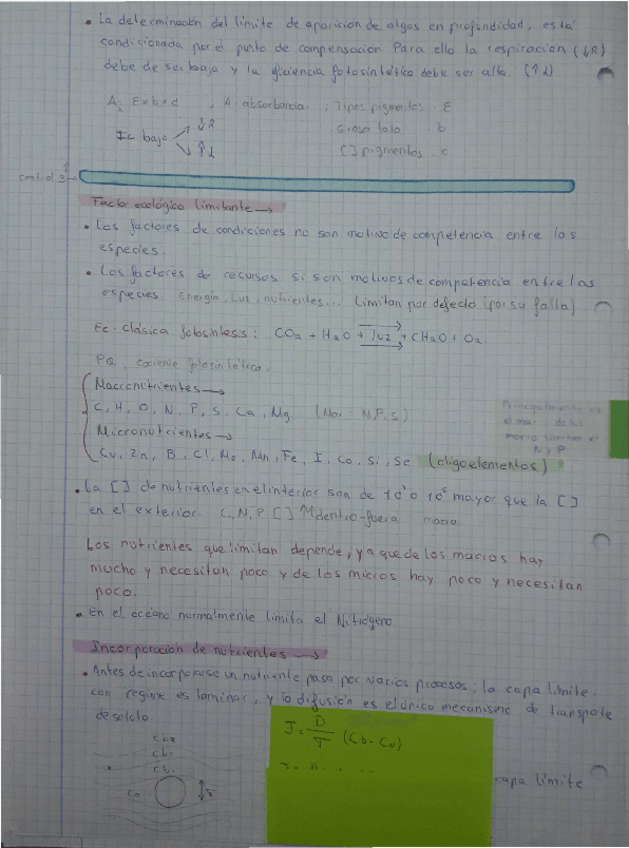 • La determinación del límite de aparición de algas en profundidad, está
condicionada por el punto de compensación Para ello la respiración (↓R)
debe de ser baja y la eficiencia fotosintético debe ser alta. (↑α)
A = ε × b × c ; A: absorbancia ; Tipos pigmentos. ε
Grosor talo b
Ic bajo ↓R ↑α
[] pigmentos. c
control 3
Factor ecológico limitante →
• Los factores de condiciones no son motivo de competencia entre las
especies.
• Los factores de recursos si son motivos de competencia entre las
especies. Energía, Luz, nutrientes... Limitan por defecto (por su falta)
Ec. clásica fotosíntesis: CO2 + H2O + luz → CH2O + O2
PQ cociente fotosintético.
Macronutrientes →
C, H, O, N, P, S, Ca, Mg
Micronutrientes →
Cu, Zn, B, Cl, Mo, Mn, Fe, I, Co, Si, Se (oligoelementos)
Principalmente en
el mar, de los
macro
N y P
• La [] de nutrientes en el interior son de mayor que la []
en el exterior. C, N, P [] dentro-fuera macro
Los nutrientes que limitan depende, ya que de los macros hay
mucho y necesitan poco y de los micros hay poco y necesitan
poco.
• En el océano normalmente limita el Nitrógeno
Incorporación de nutrientes →
• Antes de incorporarse un nutriente pasa por varios procesos; la capa límite.
con regime es laminar, y la difusión es el único mecanismo de transporte
de soluto.
J = D/T (Cb - Co)
Cb
Co
capa límite